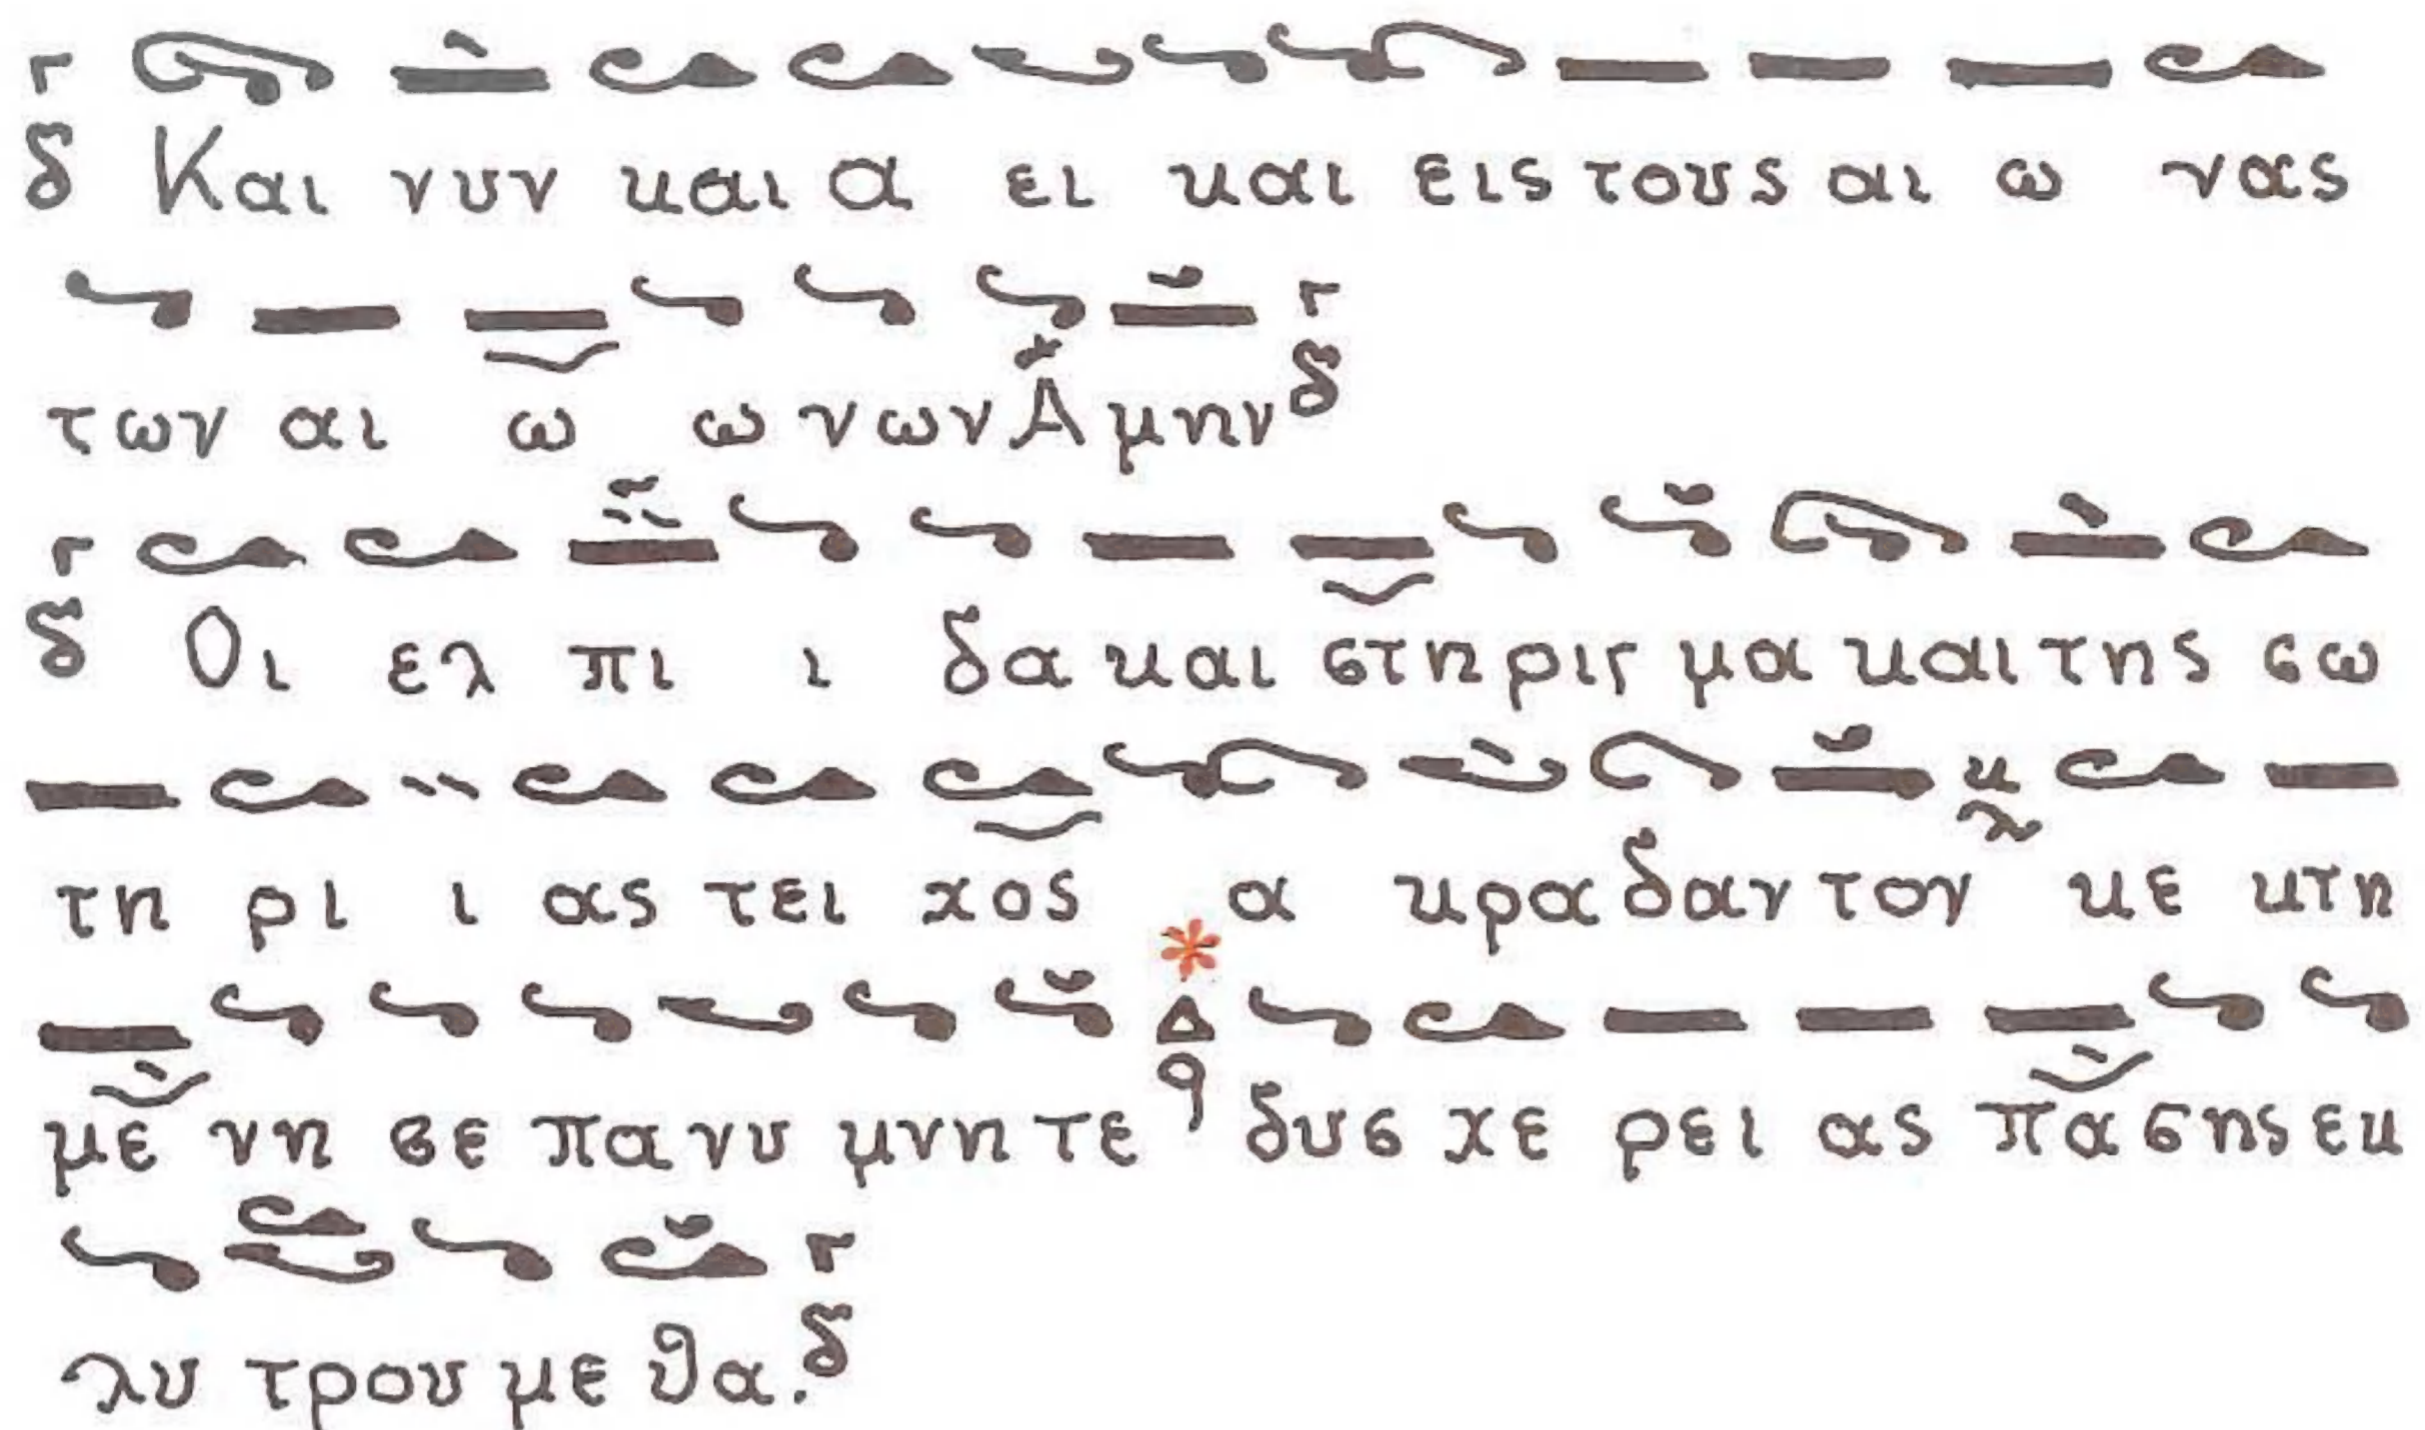 δ Και νυν και α ει και εις τους αι ω νας
των αι ω ω νων Α μην δ
δ Οι ελ πι ι δα και στη ριγ μα και της σω
τη ρι ι ας τει χος α κρα δαν τον κε κτη
με νη σε παν υ μνη τε δυσ χε ρει ας πα σης εκ
λυ τρου με θα. δ